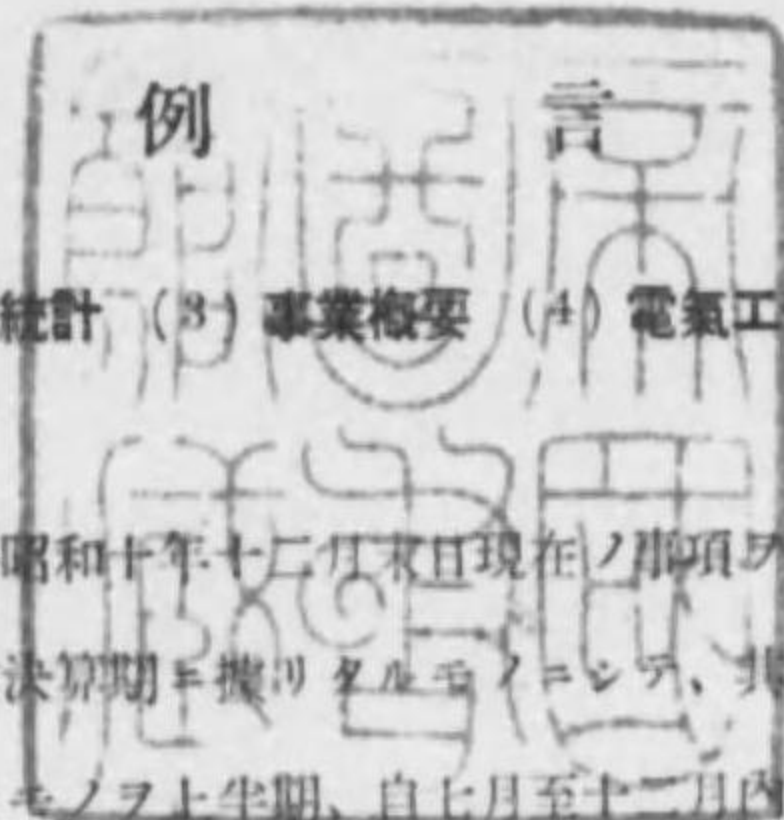 例言
統計 (3) 事業概要 (4) 電氣工
昭和十年十二月末日現在ノ事項ヲ
決算期ニ據リタルモノニシテ、其
モノヲ上半期、自七月至十二月內